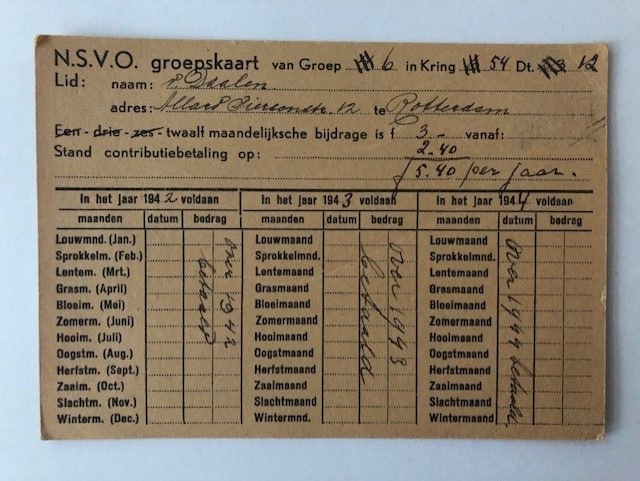 N.S.V.O. groepskaart van Groep 6 in Kring 54 Dt. 12
Lid: naam: v. Daalen.
adres: Allard Piersonstr. 12 te Rotterdam
Een - drie - zes - twaalf maandelijksche bijdrage is f 3.- vanaf:
Stand contributiebetaling op: 2.40
f 5.40 per jaar.
In het jaar 1942 voldaan In het jaar 1943 voldaan In het jaar 1944 voldaan
maanden datum bedrag maanden datum bedrag maanden datum bedrag
Louwmnd. (Jan.) Louwmaand Louwmaand
Sprokkelm. (Feb.) Sprokkelmnd. Sprokkelmnd.
Lentem. (Mrt.) Lentemaand Lentemaand
Grasm. (April) Grasmaand Grasmaand
Bloeim. (Mei) Bloeimaand Bloeimaand
Zomerm. (Juni) Zomermaand Zomermaand
Hooim. (Juli) Hooimaand Hooimaand
Oogstm. (Aug.) Oogstmaand Oogstmaand
Herfstm. (Sept.) Herfstmaand Herfstmaand
Zaaim. (Oct.) Zaaimaand Zaaimaand
Slachtm. (Nov.) Slachtmaand Slachtmaand
Winterm. (Dec.) Wintermnd. Wintermaand
over 1942
betaald
over 1943
betaald
over 1944 betaald.